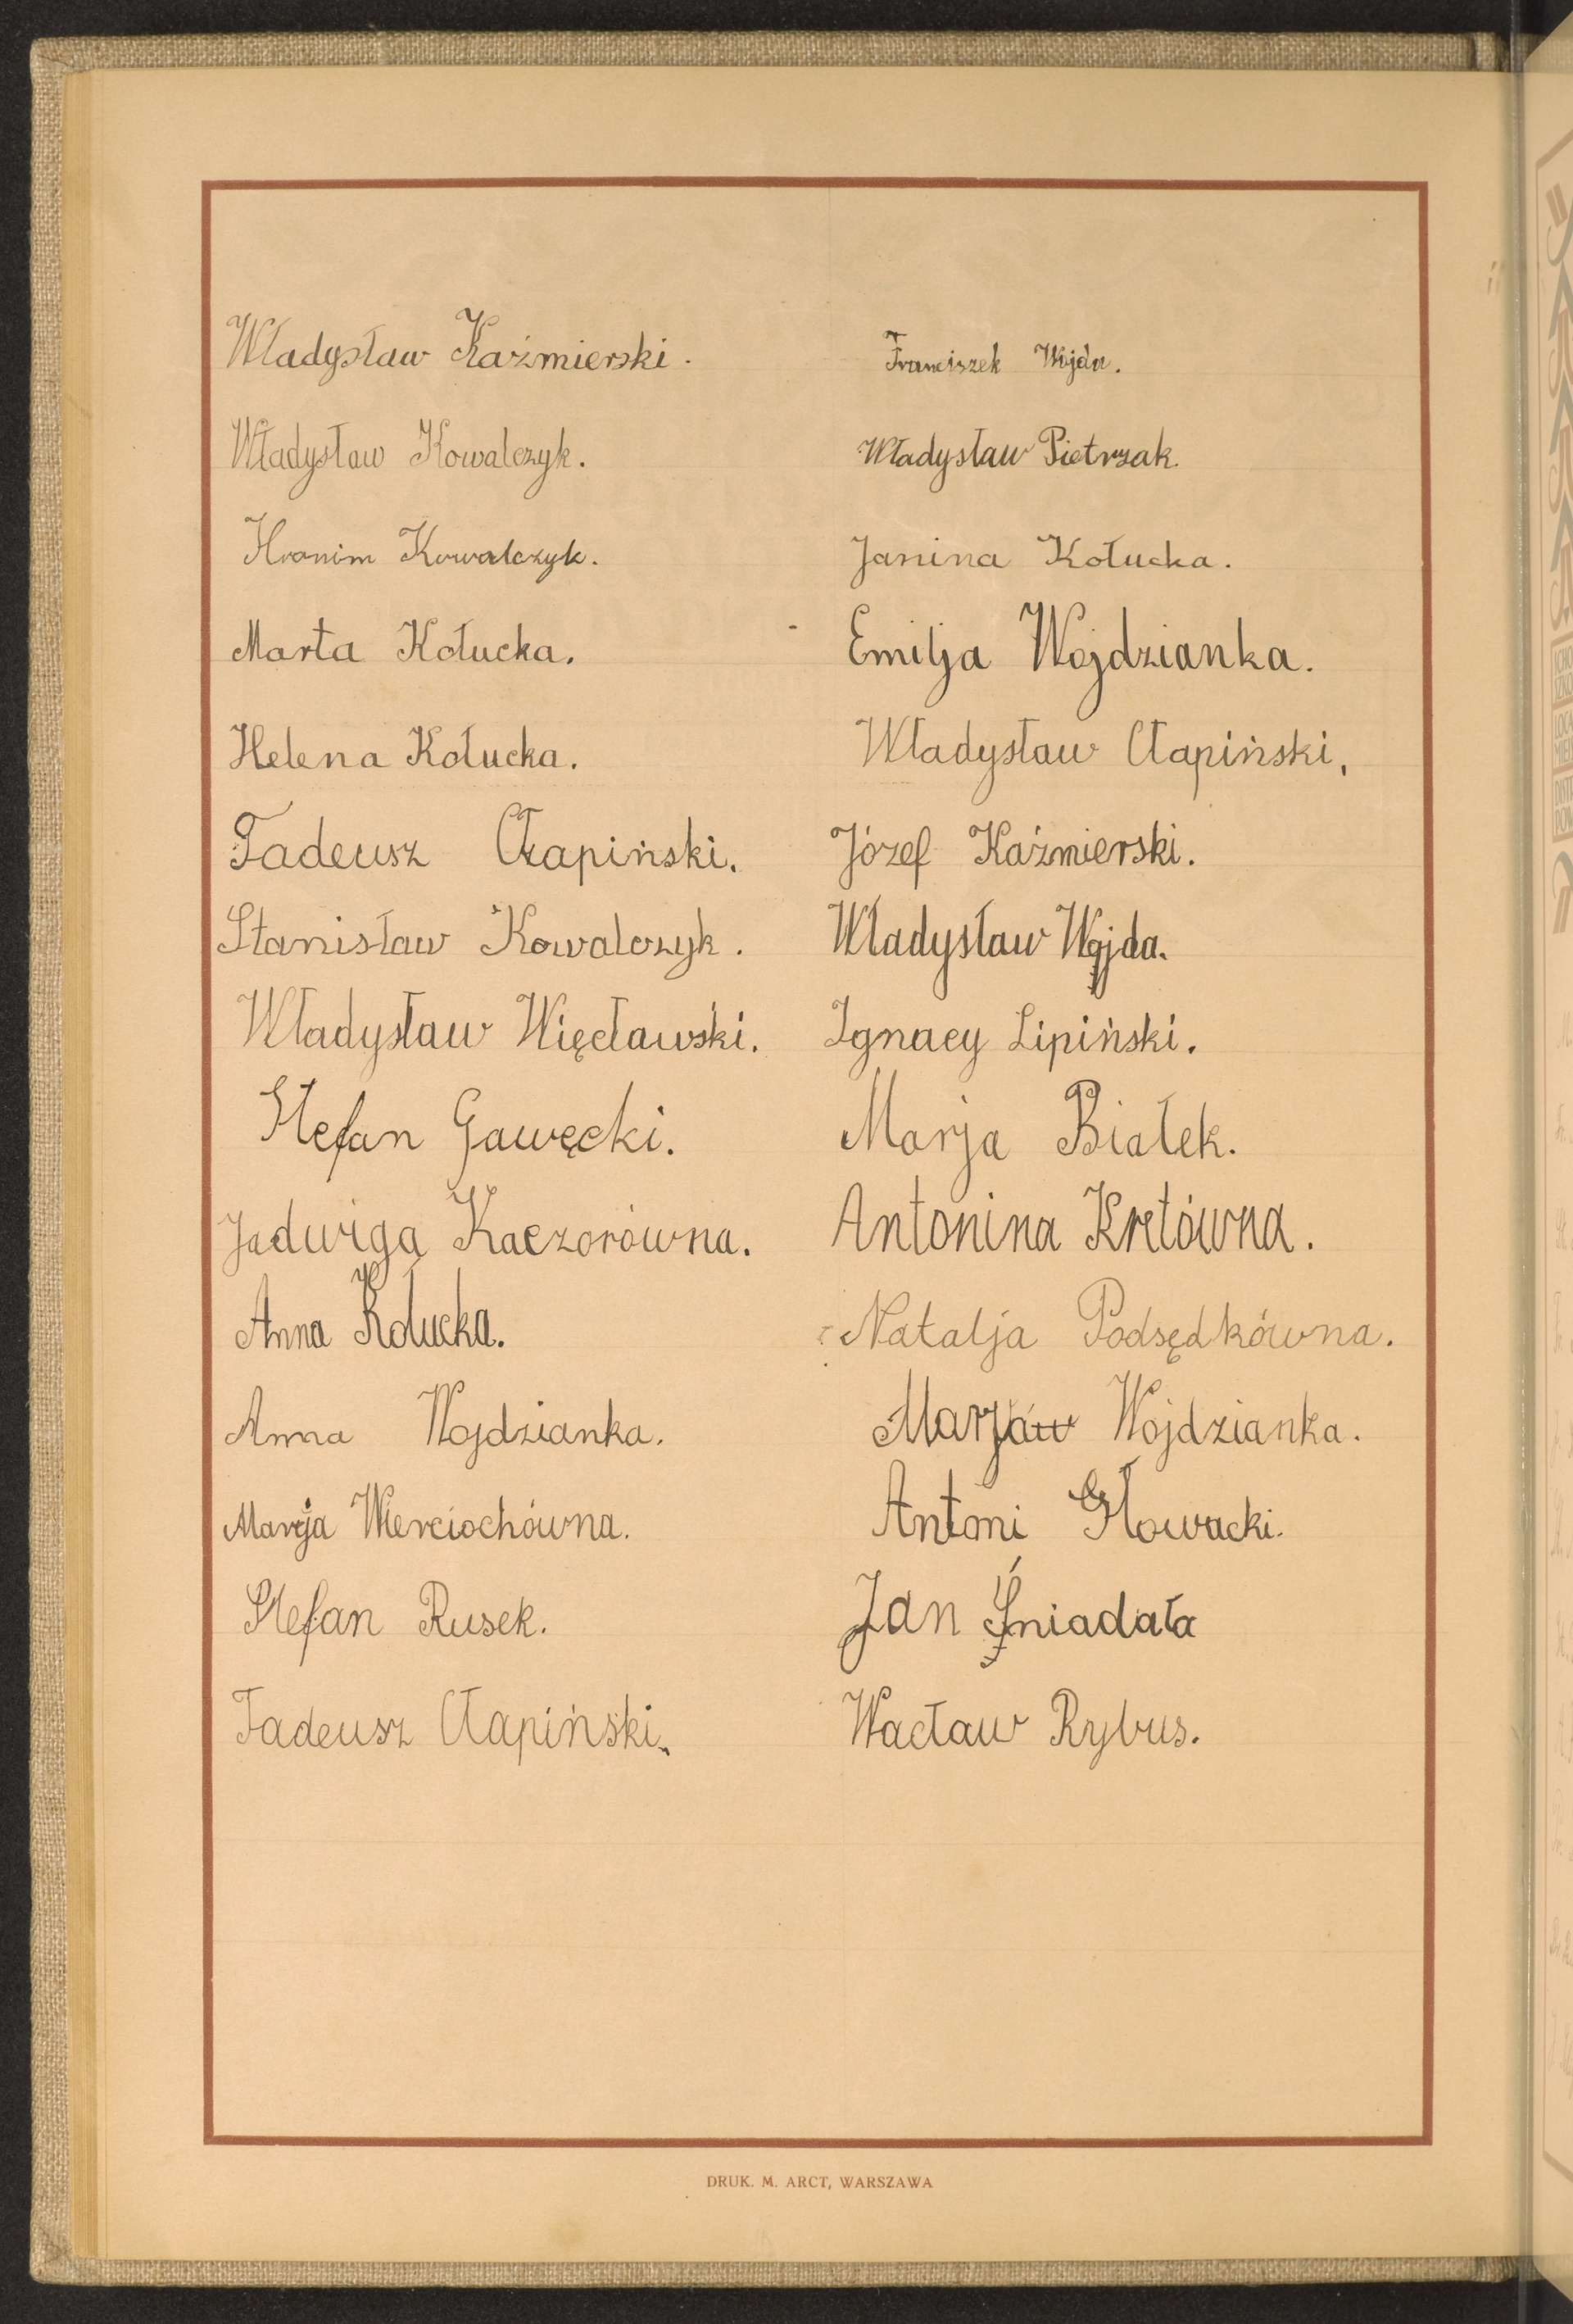 Władysław Kaźmierski.
Władysław Kowalczyk.
Hronim Kowalczyk.
Marta Kołucka.
Helena Kołucka.
Tadeusz Czapiński.
Stanisław Kowalczyk.
Władysław Więcławski.
Stefan Gawęcki.
Jadwiga Kaczorówna.
Anna Kołucka.
Anna Wojdzianka.
Marja Wierciochówna.
Stefan Rusek.
Tadeusz Cłapiński.
Franciszek Wojda.
Władysław Pietrzak.
Janina Kołucka.
Emilja Wojdzianka.
Władysław Cłapiński,
Józef Kaźmierski.
Władysław Wojda.
Ignacy Lipiński.
Marja Białek.
Antonina Kretówna.
Natalja Podsędkówna.
Marja Wojdzianka.
Antoni Głowacki.
Jan Śniadała
Wacław Rybus.
DRUK. M. ARCT, WARSZAWA